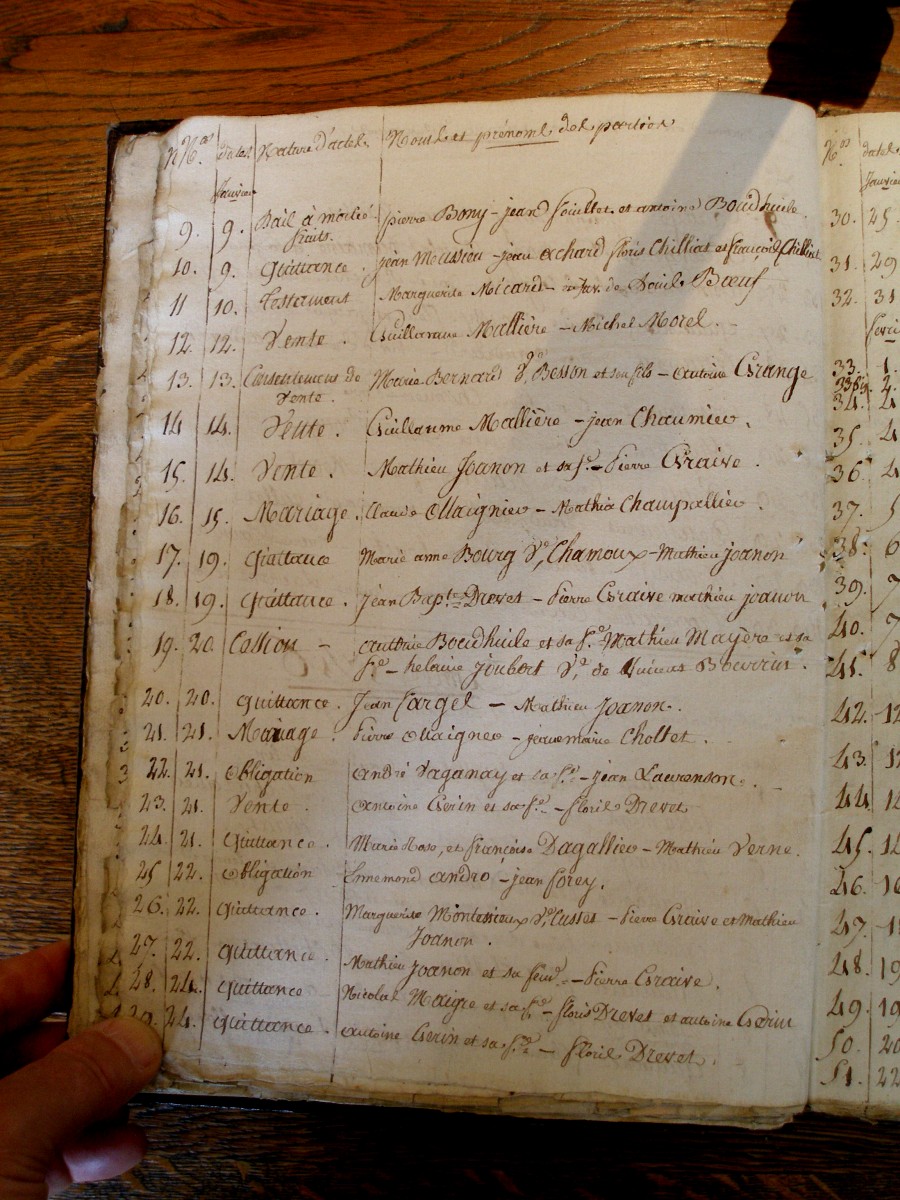 Nos dates Nature d'actes Noms et prénoms des parties
Janvier
9. 9. Bail à moitié pierre Bony - jean Souillet et antoine Boudhuile
fruits.
10. 9. Quittance. jean Moussion - jean achard floris Chilliat et françois Chilliat
11 10. Testament Marguerite Micard - de Douil Bœuf
12. 12. Vente. Guillaume Mallière - Michel Morel.
13. 13. Consentement de Marie Bernard Ve Besson et son fils - antoine Grange
vente.
14 14. Vente. Guillaume Mallière - jean Chaumier.
15. 14. Vente. Mathieu Joanon et sa fe - Pierre Graive.
16. 15. Mariage. Claude Ollaignier - Mathie Champallier.
17. 19. Quittance Marie anne Bourg Ve Chamoux - Mathieu joanon
18. 19. Quittance. jean Bapte Drevet - Pierre Graive mathieu joanon
19. 20. Cession - Boudhuile et sa fe Mathieu Mayère et sa
fe - helaine joubert Ve de
20. 20. Quittance. Jean Fargel - Mathieu Joanon.
21. 21. Mariage. Pierre Ollaignec - jeanemarie Chollet.
22. 21. Obligation André Vaganay et sa fe - jean Laurenson.
23. 21. Vente. Antoine Gerin et sa fe - floris Drevet
24. 21. Quittance. Marie et françoise Dagallier - Mathieu Verne.
25 22. Obligation Ennemond andro - jean forey.
26. 22. Quittance. Marguerite Montessieux Ve Cusset - Pierre Graive et Mathieu
Joanon.
27. 22. Quittance. Mathieu Joanon et sa fem - Pierre Graive.
28. 24. Quittance Nicolas Maigre et sa fe - floris Drevet et antoine Gerin
29. 24. Quittance. antoine Gerin et sa fe - floris Drevet.
Nos dates
Janvier
30. 25
31. 29
32. 31
33. 1.
33 bis 2.
34.
35.
36.
37. 5
38. 6
39. 7
40. 7
41. 8
42. 12
43. 12
44. 14
45.
46. 16
47.
48. 19
49. 19
50. 20
51. 22